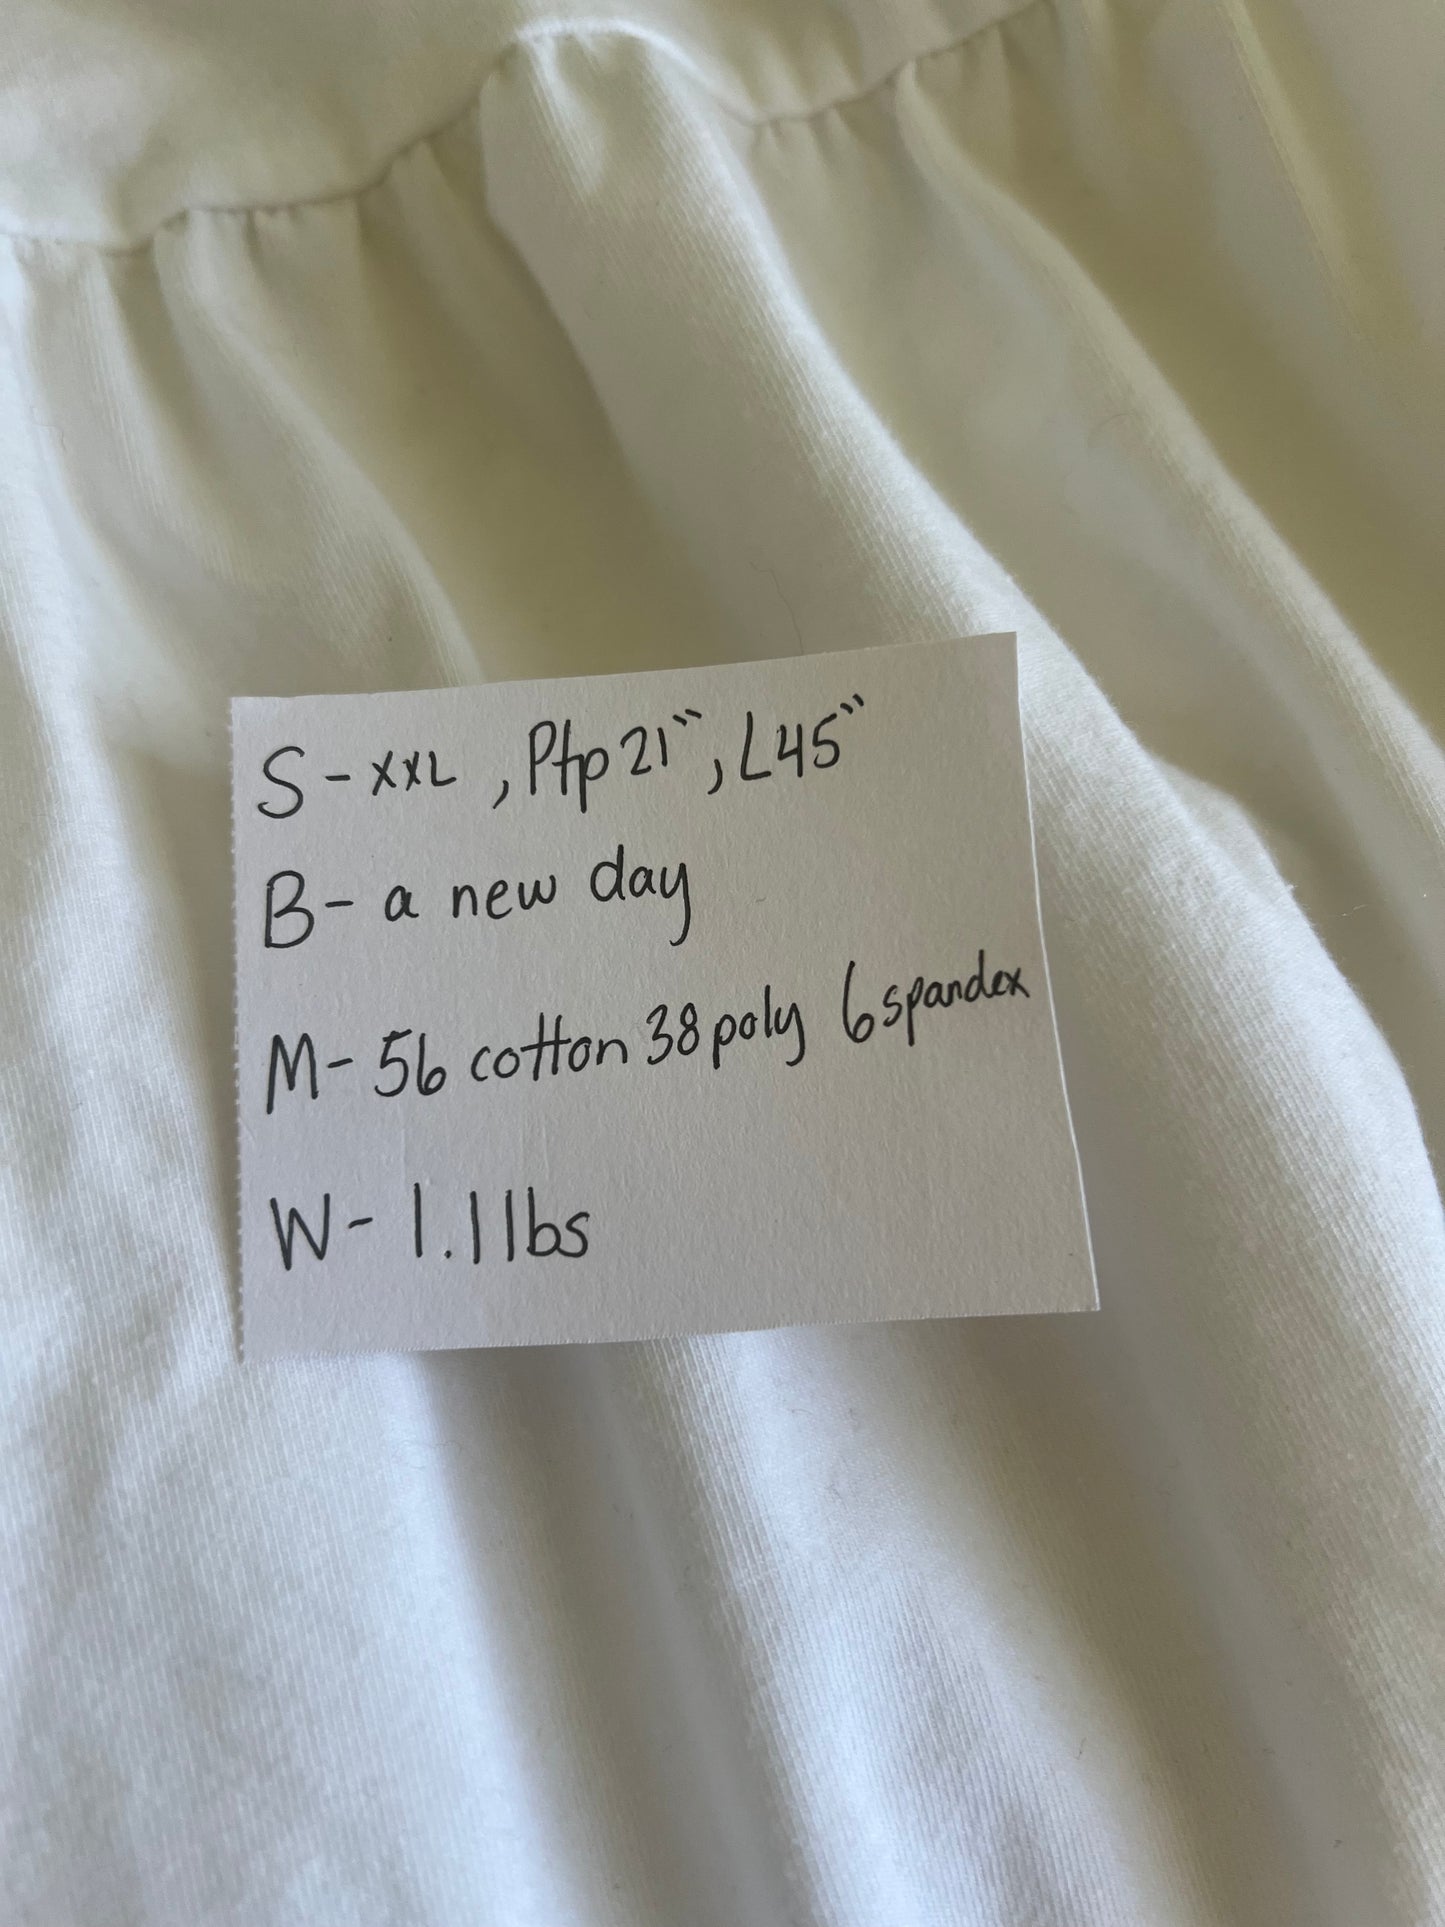 S - XXL , Ptp 21" , L45"
B - a new day
M - 56 cotton 38 poly 6 spandex
W - 1.1 lbs